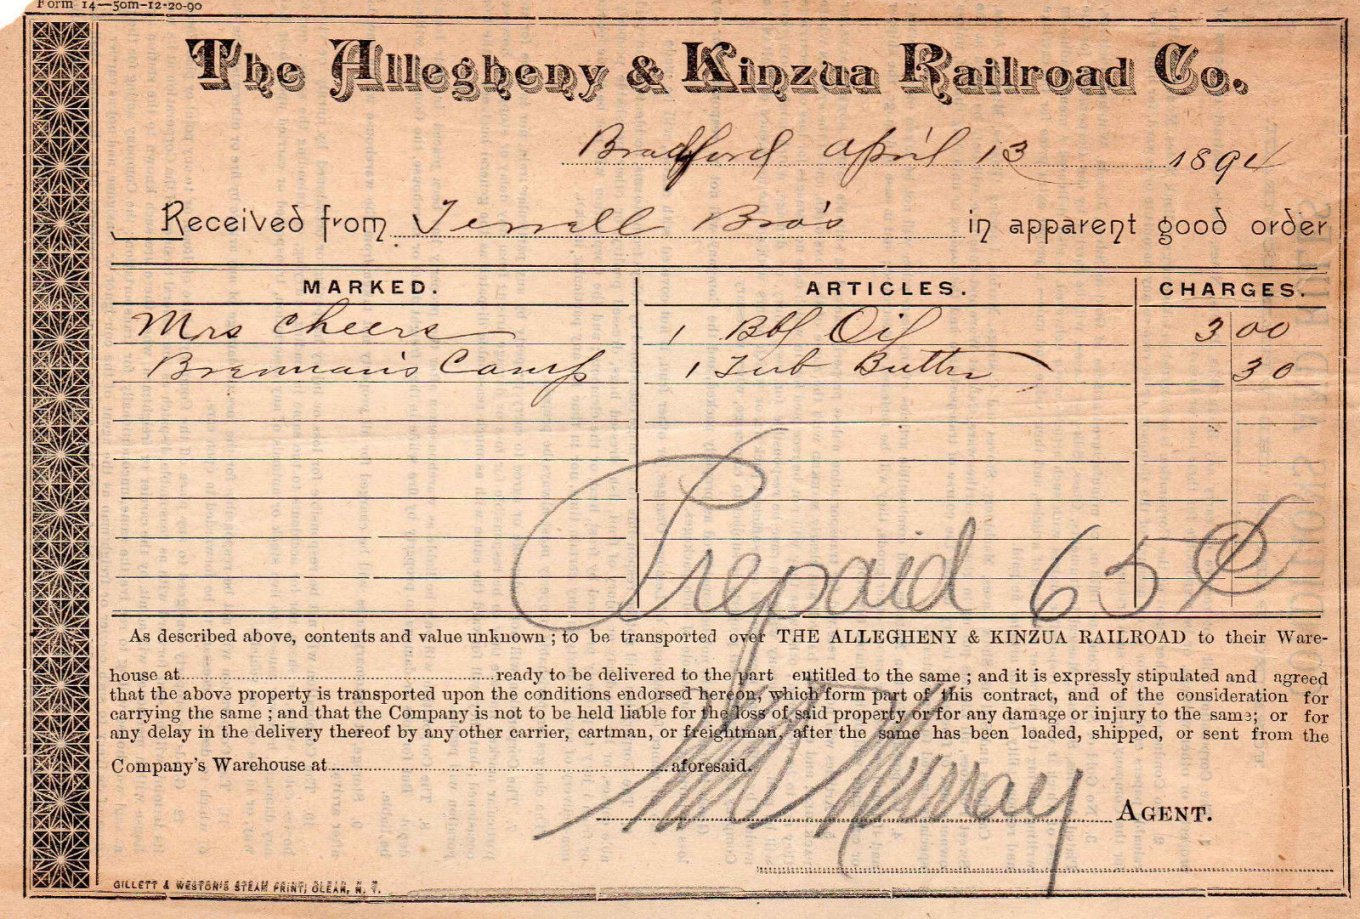 Form 14—50m-12-20-90
The Allegheny & Kinzua Railroad Co.
Bradford April 13 1891
Received from Terrell Bro's in apparent good order
MARKED. ARTICLES. CHARGES.
Mrs Cheers 1 Bbl Oil 3 00
Brennan's Camp 1 Tub Butter 30
Prepaid 65¢
As described above, contents and value unknown ; to be transported over THE ALLEGHENY & KINZUA RAILROAD to their Ware-
house at ready to be delivered to the part entitled to the same ; and it is expressly stipulated and agreed
that the above property is transported upon the conditions endorsed hereon, which form part of this contract, and of the consideration for
carrying the same ; and that the Company is not to be held liable for the loss of said property or for any damage or injury to the same; or for
any delay in the delivery thereof by any other carrier, cartman, or freightman, after the same has been loaded, shipped, or sent from the
Company's Warehouse at aforesaid.
Murray AGENT.
GILLETT & WESTON'S STEAM PRINT, OLEAN, N. Y.